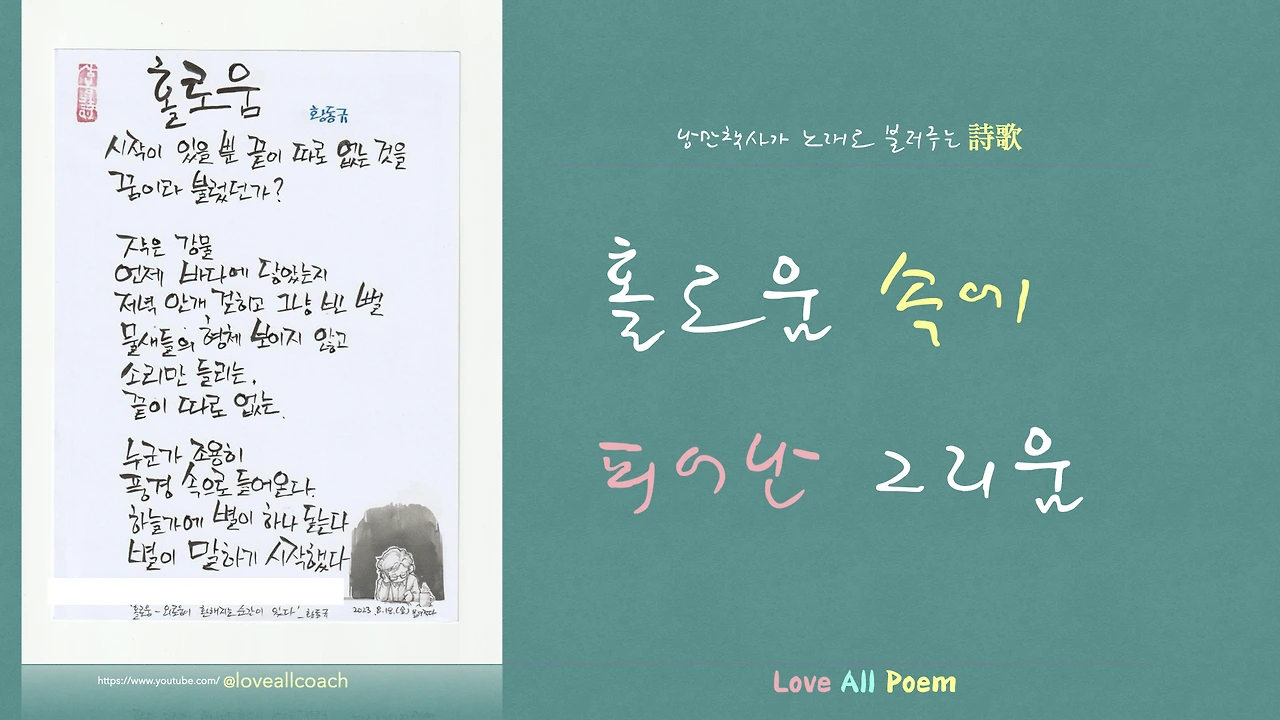 홀로움
황동규
시작이 있을 뿐 끝이 따로 없는 것을
꿈이라 불렀던가?
작은 강물
언제 바다에 닿았는지
저녁 안개 걷히고 그냥 빈 뻘
물새들의 형체 보이지 않고
소리만 들리는,
끝이 따로 없는.
누군가 조용히
풍경 속으로 들어온다.
하늘가에 별이 하나 돋는다
별이 말하기 시작했다
'홀로움 - 외로움이 환해지는 순간이 있다' _황동규
2023.8.18.(금)
https://www.youtube.com/ @loveallcoach
낭만책사가 노래로 불러주는 詩歌
홀로움 속에
피어난 그리움
Love All Poem